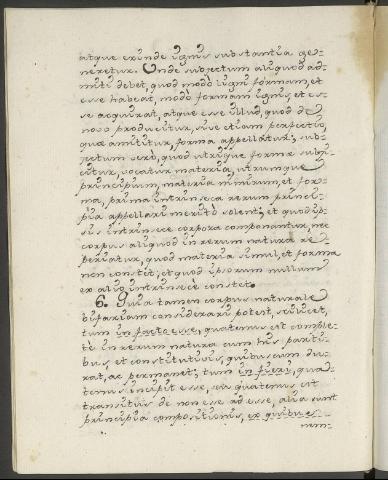 atque exinde ignis substantia ge-
neretur. Unde subjectum aliquod ad-
miti debet, quod modò ligni formam, et
esse habeat, modò formam ignis, et es-
se acquirat, atque esse illud, quod de
novo producitur, sive etiam perfectio,
quæ amititur, forma appellatur; sub-
jectum verò, quod utrique formæ subji-
citur, vocatur materia, utrumque
principium, materia nimirum, et for-
ma, prima intrinseca rerum princi-
pia appellari meritò solent; et quod ip-
sis intrinsece corpora componantur, nec
corpus aliquod in rerum natura re-
periatur, quod materia simul, et forma
non constet; et quod ipsorum nullum
ex alio intrinsecè constet.
6. Quia tamen corpus naturale
bifariam considerari potest, scilicet,
tum in facto esse, quatenus est comple-
tè in rerum natura cum his parti-
bus, et constitutivis, quibuscum du-
rat, ac permanet; tum in fieri, qua-
tenus incipit esse, seu quatenus est
transitus de non esse ad esse, alia sunt
principia compositionis, ex quibus
nem-